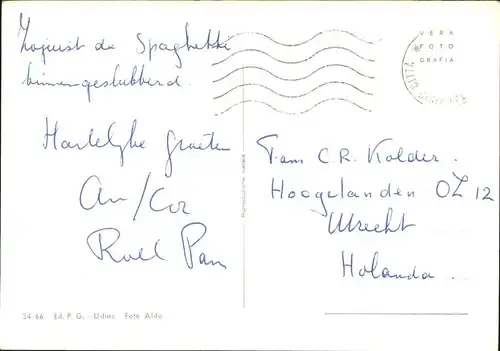 Zojuist de Spaghetti
binnengeslubberd.
Hartelijke groeten
An/Cor
Roel Pam
VERA
FOTO
GRAFIA
CITTÀ
Fam C R. Kolder.
Hoogelanden OZ 12
Utrecht
Holanda.
34-66 Ed. P. G. - Udine Foto Aldo